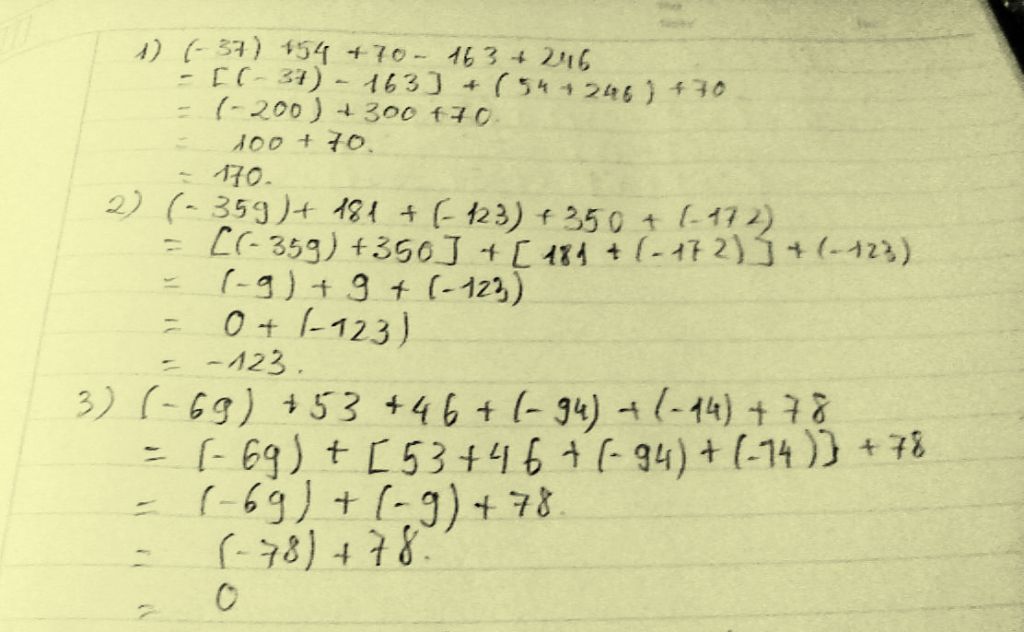 1) (-37) +54 +70 - 163 + 246
= [(-37) - 163] + (54 + 246) + 70
= (-200) + 300 + 70.
= 100 + 70.
= 170.
2) (-359) + 181 + (-123) + 350 + (-172)
= [(-359) + 350] + [181 + (-172)] + (-123)
= (-9) + 9 + (-123)
= 0 + (-123)
= -123.
3) (-69) + 53 + 46 + (-94) + (-14) + 78
= (-69) + [53 + 46 + (-94) + (-14)] + 78
= (-69) + (-9) + 78.
= (-78) + 78.
= 0